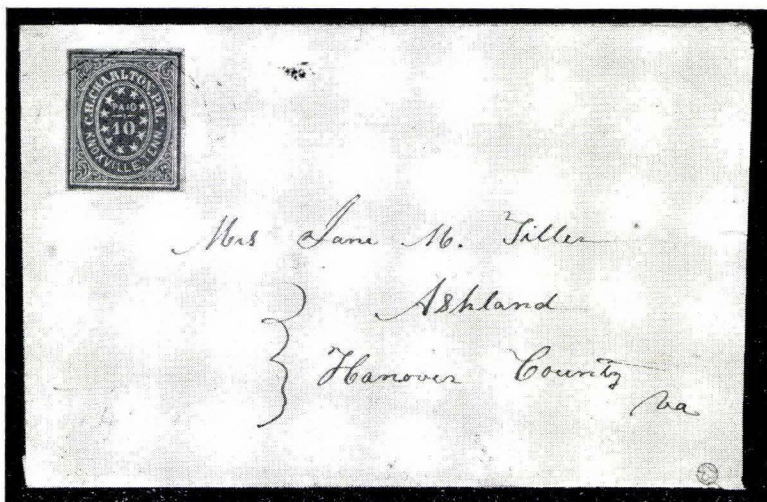 C.H. CHARLTON P.M.
PAID
10
KNOXVILLE TENN.
Mrs Jane M. Tiller
Ashland
Hanover County
Va